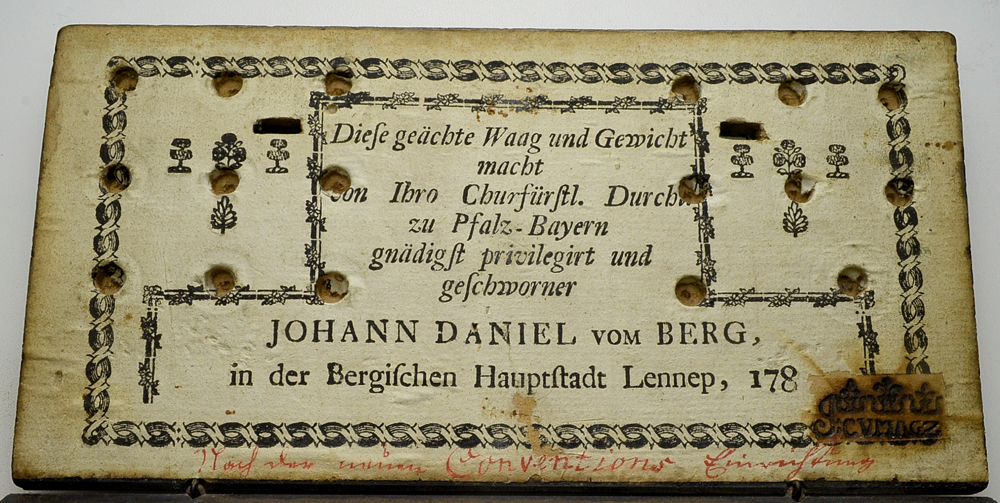 Dieſe geächte Waag und Gewicht
macht
von Ihro Churfürſtl. Durchl.
zu Pfalz-Bayern
gnädigſt privilegirt und
geſchworner
JOHANN DANIEL VOM BERG,
in der Bergiſchen Hauptſtadt Lennep, 178
Nach der neuen Conventions Einrichtung